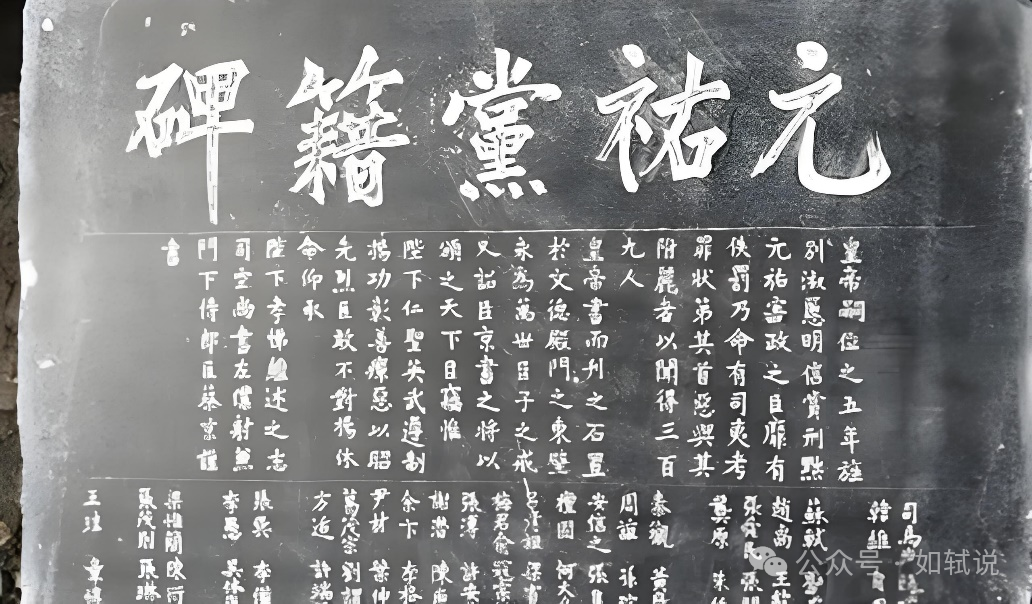 元祐黨籍碑
皇帝嗣位之五年旌
別淑慝明信賞刑黜
元祐害政之臣靡有
佚罰乃命有司夷考
罪狀第其首惡與其
附麗者以聞得三百
九人
皇帝書而刊之石置
於文德殿門之東壁
永為萬世臣子之戒
又詔臣京書之將以
頒之天下臣竊惟
陛下仁聖英武遵制
揚功彰善癉惡以昭
先烈臣敢不對揚休
命仰承
陛下孝悌繼述之志
司空尚書左僕射兼
門下侍郎臣蔡京謹
書
司馬
韓維
蘇軾
趙卨 王
張
龔原 朱
秦觀 黃
周誼 張
安信之 張
檀固 何大
呂 祖 梁
梅君俞
張溥 許安
謝潛 陳唐
余卞 李格
尹材 葉仲
葛茂宗 劉謂
方适 許端
張巽 李備
李愚 吳休
梁惟簡 陳衍
張茂則 張琳
王珪 章惇
公众号·如轼说